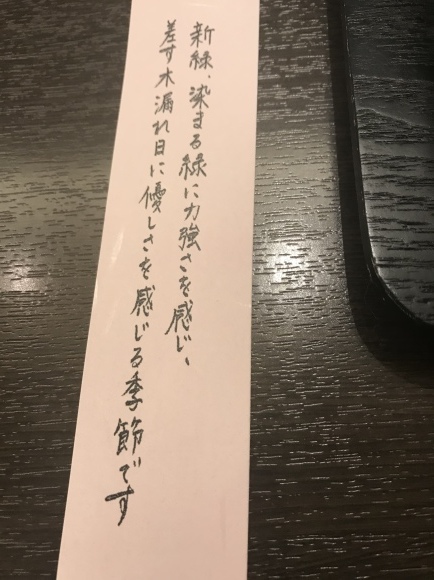 新緑、染まる緑に力強さを感じ、
差す木漏れ日に優しさを感じる季節です